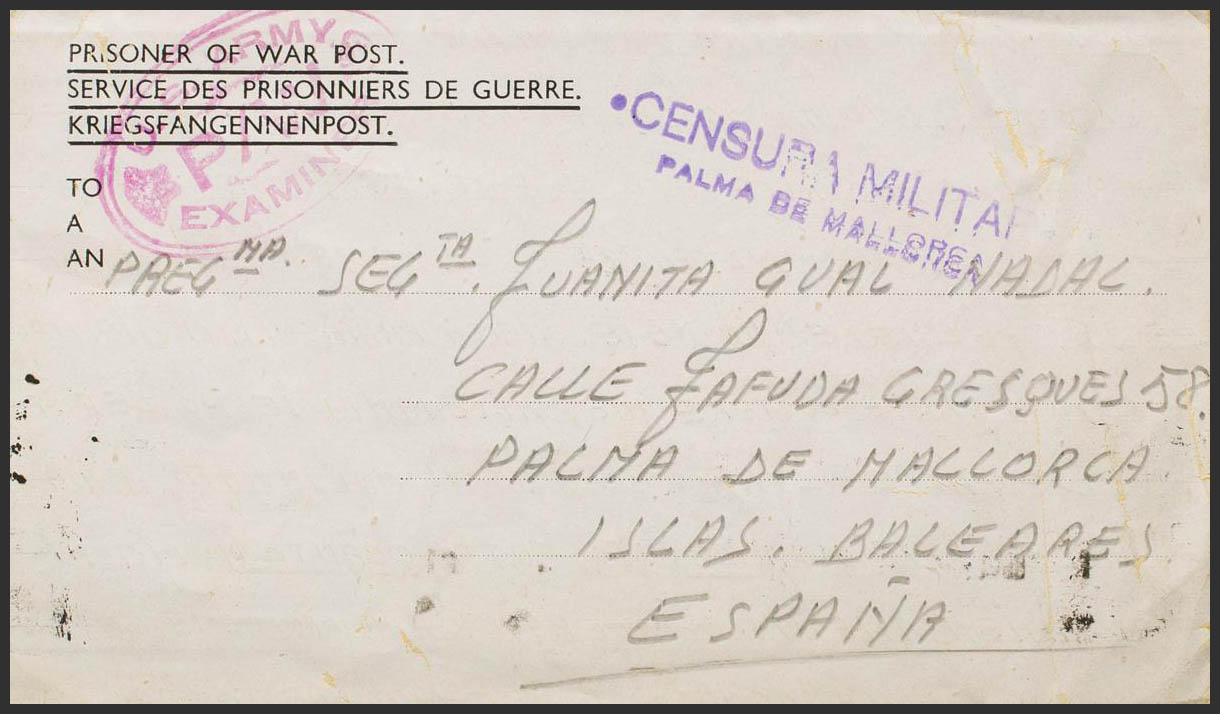 PRISONER OF WAR POST.
SERVICE DES PRISONNIERS DE GUERRE.
KRIEGSFANGENNENPOST.
U.S. ARMY
EXAMINER
•CENSURA MILITAR
PALMA DE MALLORCA
TO
A
AN
SEGTA. JUANITA GUAL NADAL.
CALLE JAFUDA CRESQUES 58.
PALMA DE MALLORCA.
ISLAS. BALEARES.
ESPAÑA